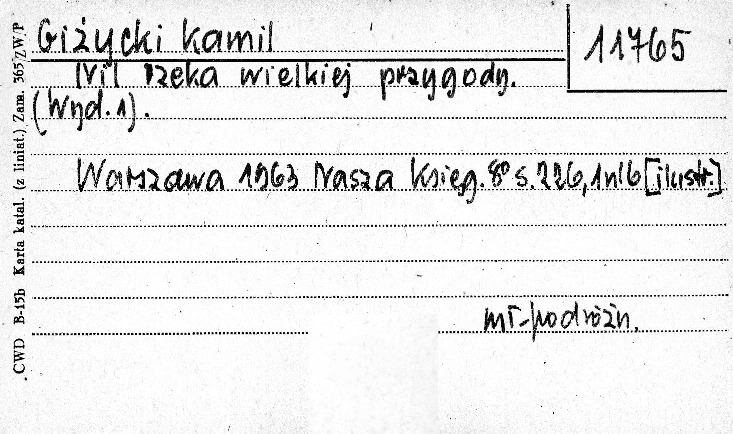 Giżycki Kamil
11765
Nil rzeka wielkiej przygody.
(Wyd. 1).
Warszawa 1963 Nasza Księg. 8° s. 226, 1nlb [ilustr.]
mł-podróżn.
CWD B-15b Karta katal. (z liniat.) Zam. 365/ZW/P